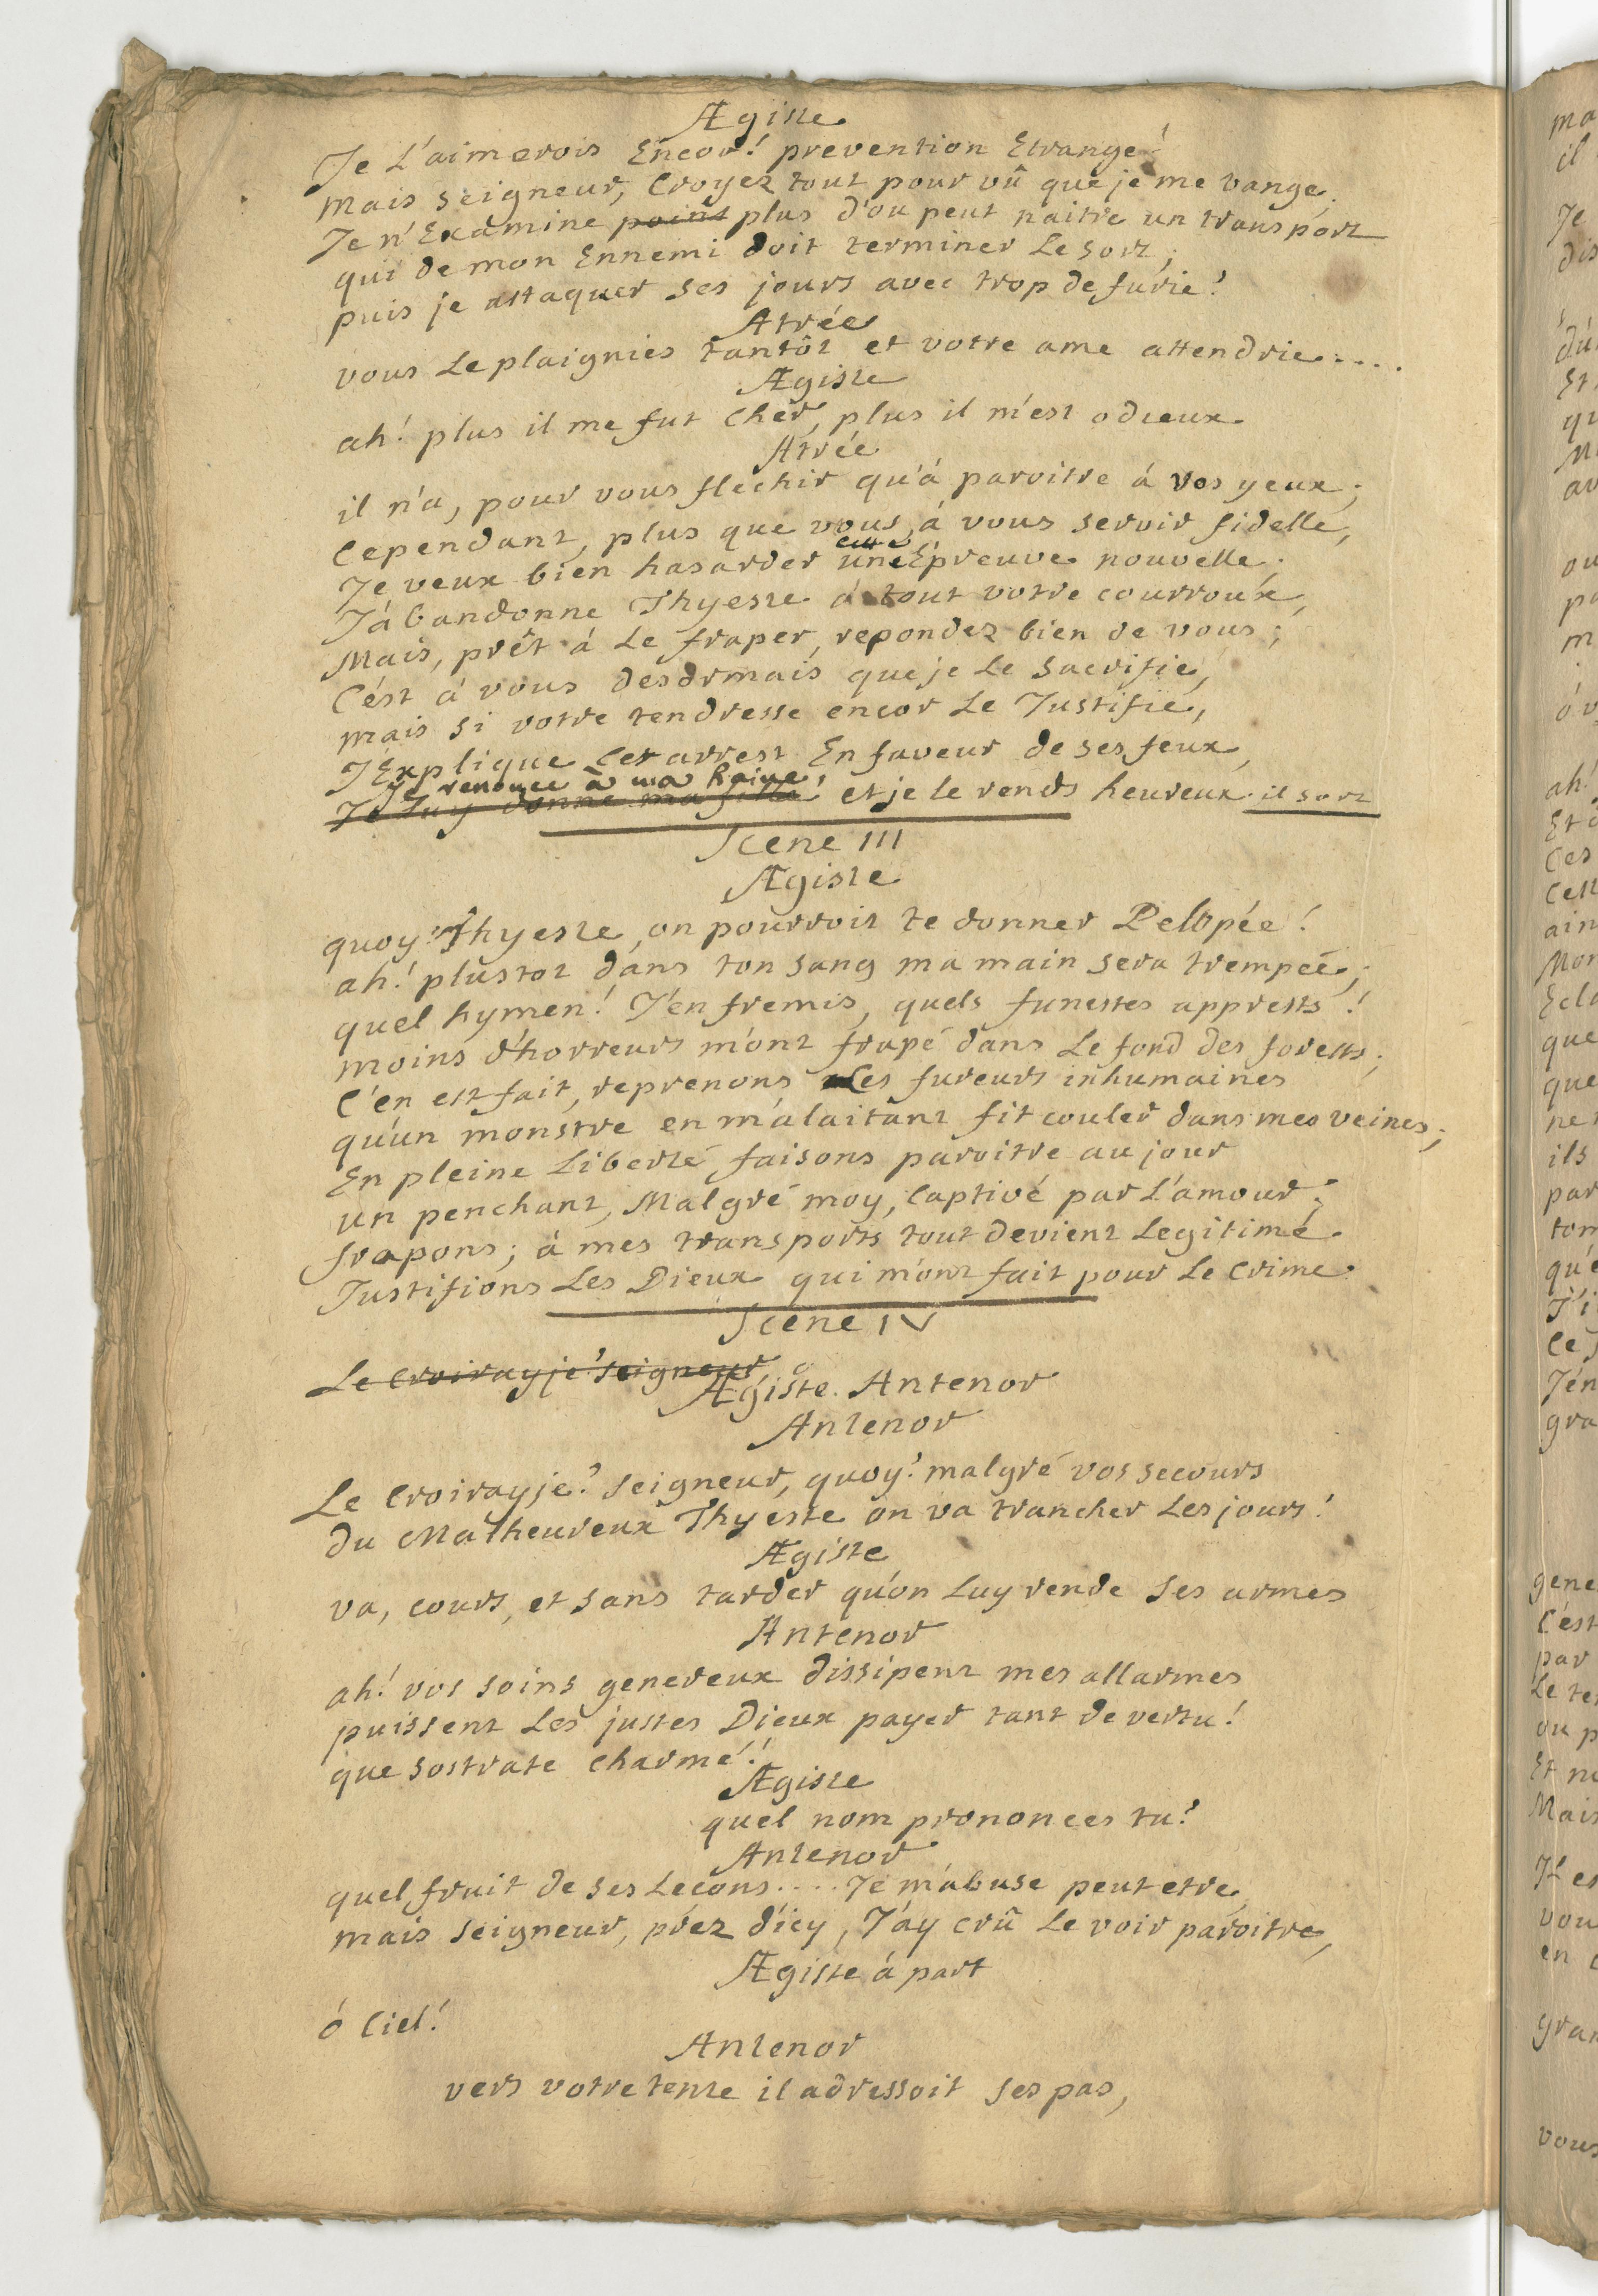 Ægiste
Je L'aimerois Encor! prevention Etrange!
Mais seigneur, Croyez tout pour vû que je me vange,
Je n'Examine point plus d'ou peut naitre un transport
qui de mon Ennemi doit terminer Le sort;
puis je attaquer ses jours avec trop de furie?
Atrée
vous Le plaigniés tantôt et votre ame attendrie....
Ægiste
ah! plus il me fut Cher, plus il m'est odieux
Atrée
il n'a, pour vous flechir qu'à paroitre à vos yeux;
Cependant, plus que vous, à vous servir fidelle,
cette
Je veux bien hasarder une Epreuve nouvelle;
J'abandonne Thyeste à tout votre courroux,
Mais, prêt à Le fraper, repondez bien de vous;
C'est à vous desormais que je Le sacrifie,
mais si votre tendresse encor Le Justifie,
J'Explique Cet arrest En faveur de ses feux,
je renonce à ma haine,
Je Luy donne ma fille, et je le rends heureux. il sort
Scene III
Ægiste
quoy? Thyeste, on pourroit te donner Pelopée!
ah! plustot dans ton sang ma main sera trempée;
quel hymen! J'en fremis, quels funestes apprests!
moins d'horreurs m'ont frapé dans Le fond des forests;
C'en est fait, reprenons Les fureurs inhumaines
qu'un monstre en m'alaitant fit couler dans mes veines;
En pleine Liberté, faisons paroitre au jour
un penchant, Malgré moy, Captivé par L'amour;
frapons; à mes transports tout devient Legitime.
Justifions Les Dieux qui m'ont fait pour Le Crime.
Scene IV
Le Croiray je? seigneur
Ægiste. Antenor
Antenor
Le Croiray je? seigneur, quoy? malgré vos secours
du Malheureux Thyeste on va trancher Les jours!
Ægiste
va, cours, et sans tarder qu'on Luy rende ses armes
Antenor
ah! vos soins genereux dissipent mes allarmes
puissent Les justes Dieux payer tant de vertu!
que sostrate Charmé!
Ægiste
quel nom prononces tu?
Antenor
quel fruit de ses Lecons.... Je m'abuse peut etre,
mais seigneur, prez d'icy, J'ay crû Le voir paroitre,
Ægiste à part
ô Ciel!
Antenor
vers votre tente il adressoit ses pas,